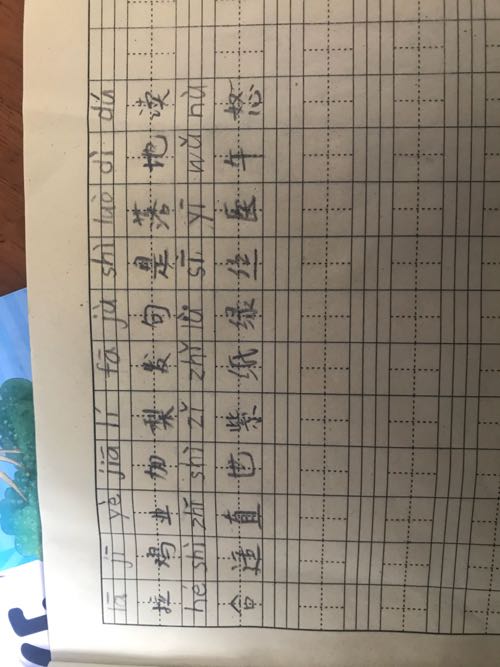 lā jī yè jiā lí fā jù shì luò dì dú
拉 鸡 业 加 梨 发 句 是 落 地 读
hé shì zhí shì zǐ zhǐ lǜ sī yī wǔ nù
合 适 直 世 紫 纸 绿 丝 医 午 怒